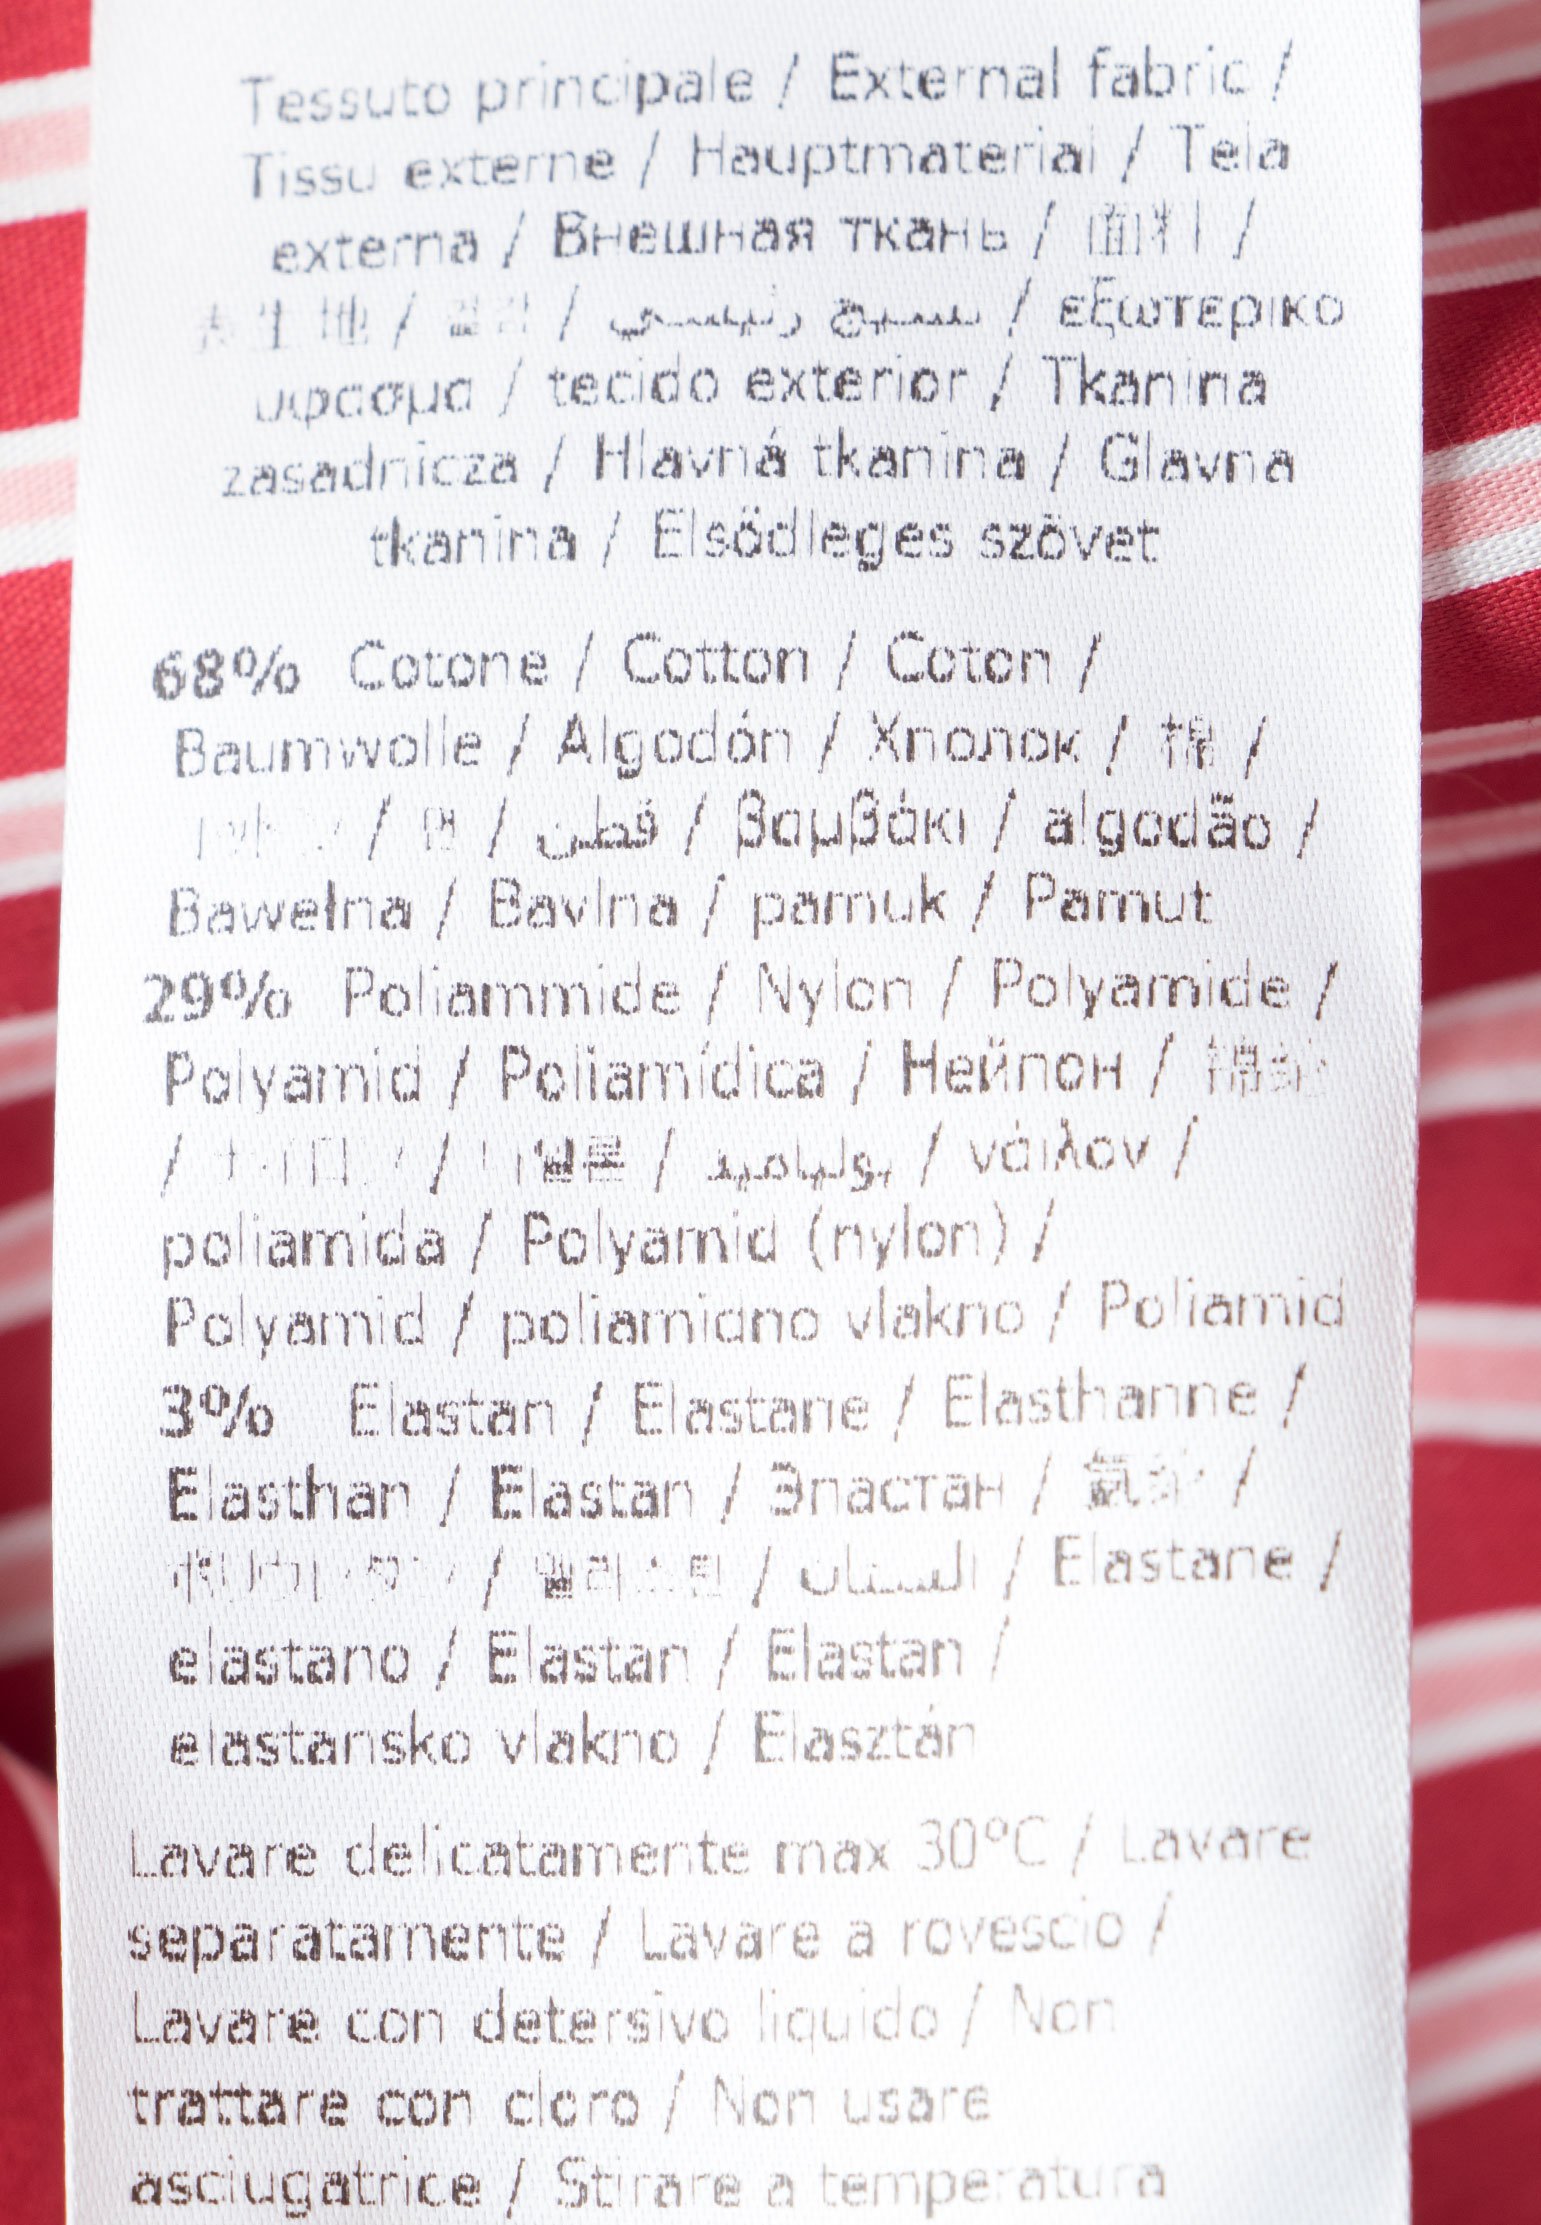 Tessuto principale / External fabric /
Tissu externe / Hauptmaterial / Tela
externa / Внешная ткань / 面料 /
表生地 / 겉감 / نسيج رئيسي / εξωτερικο
υφασμα / tecido exterior / Tkanina
zasadnicza / Hlavná tkanina / Glavna
tkanina / Elsödleges szövet
68% Cotone / Cotton / Coton /
Baumwolle / Algodón / Хлопок / 棉 /
/ 면 / قطن / βαμβάκι / algodão /
Bawełna / Bavlna / pamuk / Pamut
29% Poliammide / Nylon / Polyamide /
Polyamid / Poliamídica / Нейлон / 锦纶
/ ナイロン / 나일론 / بولياميد / νάιλον /
poliamida / Polyamid (nylon) /
Polyamid / poliamidno vlakno / Poliamid
3% Elastan / Elastane / Elasthanne /
Elasthan / Elastan / Эластан / 氨纶 /
/ 엘라스틴 / الستان / Elastane /
elastano / Elastan / Elastan /
elastansko vlakno / Elasztán
Lavare delicatamente max 30°C / Lavare
separatamente / Lavare a rovescio /
Lavare con detersivo liquido / Non
trattare con cloro / Non usare
asciugatrice / Stirare a temperatura